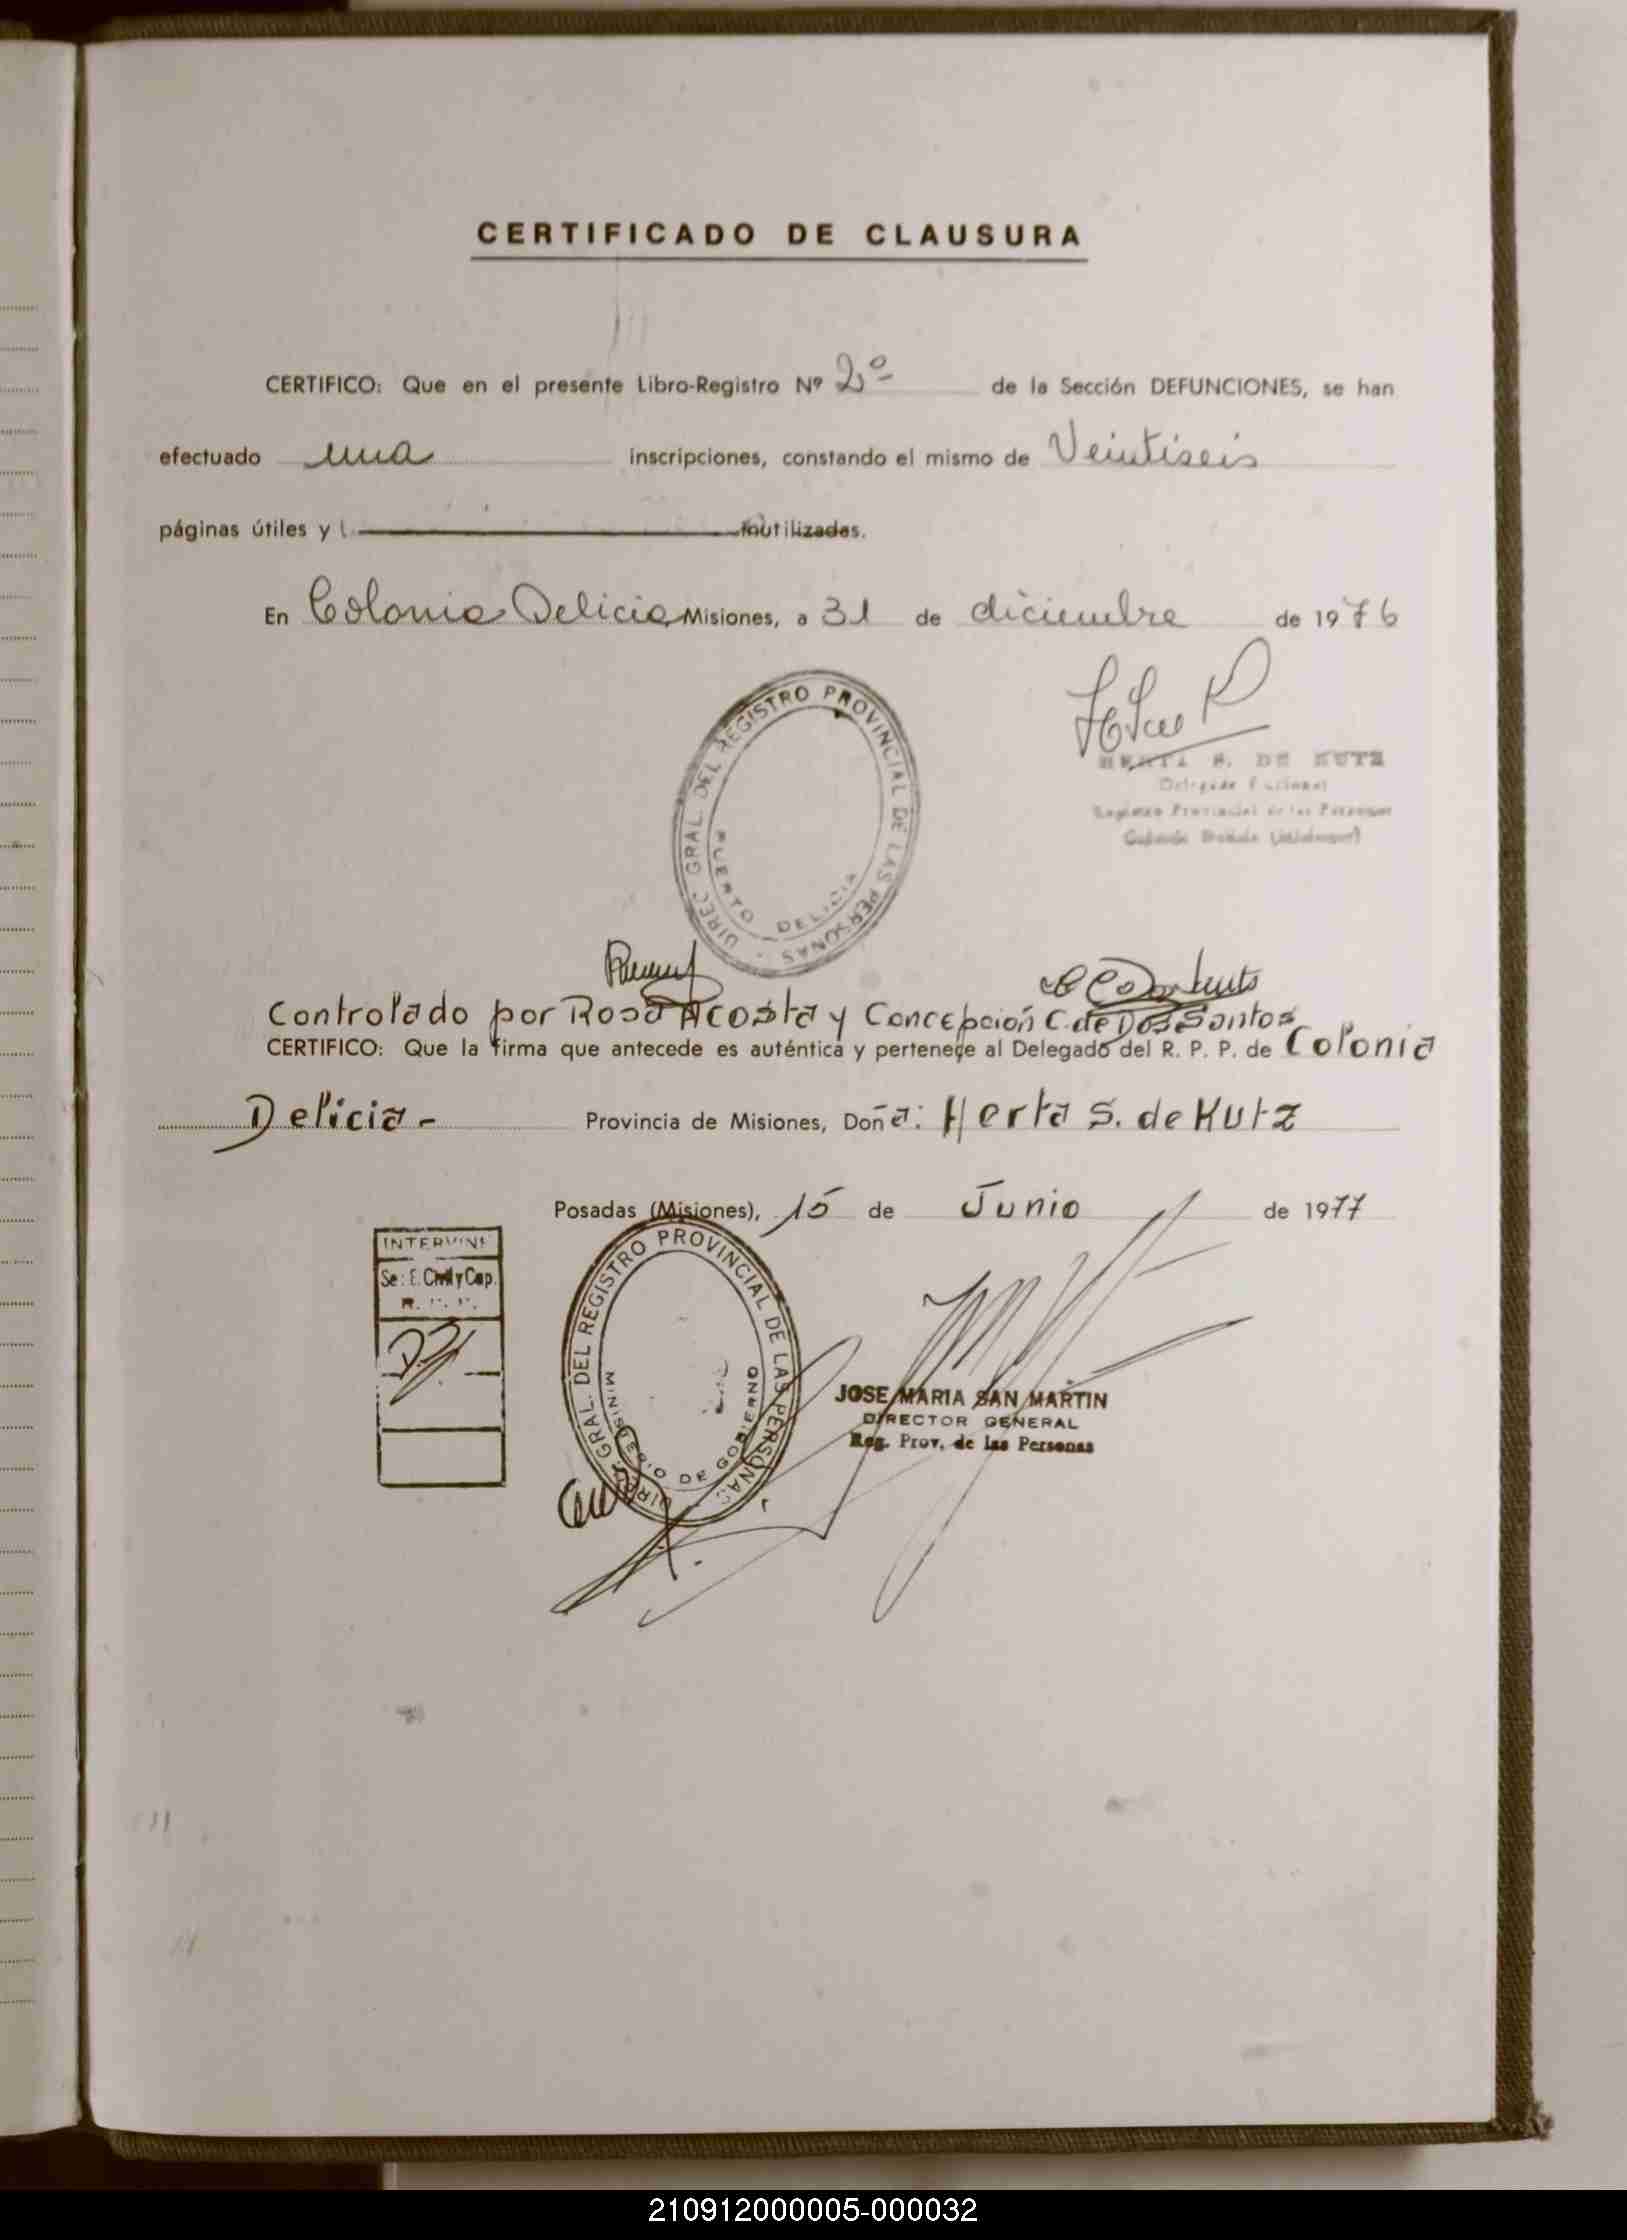 CERTIFICADO DE CLAUSURA
CERTIFICO: Que en el presente Libro-Registro Nº 2º de la Sección DEFUNCIONES, se han
efectuado una inscripciones, constando el mismo de Veintiseis
páginas útiles y inutilizadas.
En Colonia Delicia Misiones, a 31 de diciembre de 1976
DIREC. GRAL. DEL REGISTRO PROVINCIAL DE LAS PERSONAS
PUERTO DELICIA
HERTA S. DE KUTZ
Registro Provincial de las Personas
Controlado por Rosa Acosta y Concepción C. de Dos Santos
CERTIFICO: Que la firma que antecede es auténtica y pertenece al Delegado del R. P. P. de Colonia
Delicia - Provincia de Misiones, Doña: Herta S. de Kutz
Posadas (Misiones), 15 de Junio de 1977
INTERVINE
Civil y Cap.
DIREC. GRAL. DEL REGISTRO PROVINCIAL DE LAS PERSONAS
MINISTERIO DE GOBIERNO
JOSE MARIA SAN MARTIN
DIRECTOR GENERAL
Reg. Prov. de las Personas
210912000005-000032